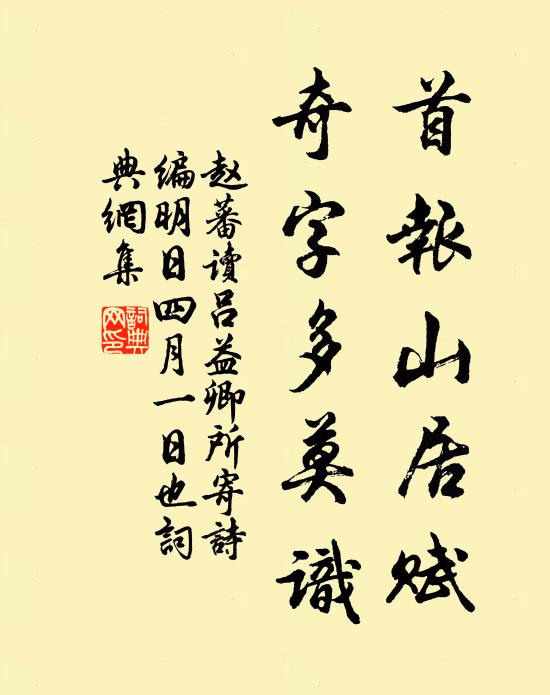 首報山居賦
奇字多莫識
赵蕃读吕益卿所寄詩
编明日四月一日也詞
典網集
詞典網印